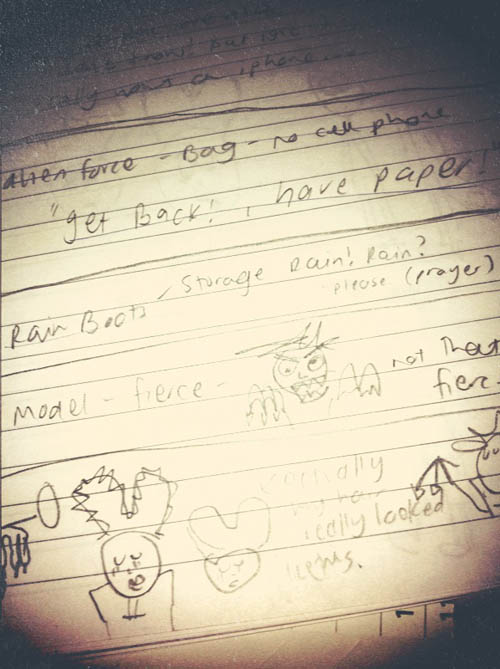 an iphone
alien force - Bag - no cell phone
"get Back! I have paper!"
Rain Boots / Storage Rain! Rain?
please (prayer)
Model - fierce - not that
fierc
my hair
really looked